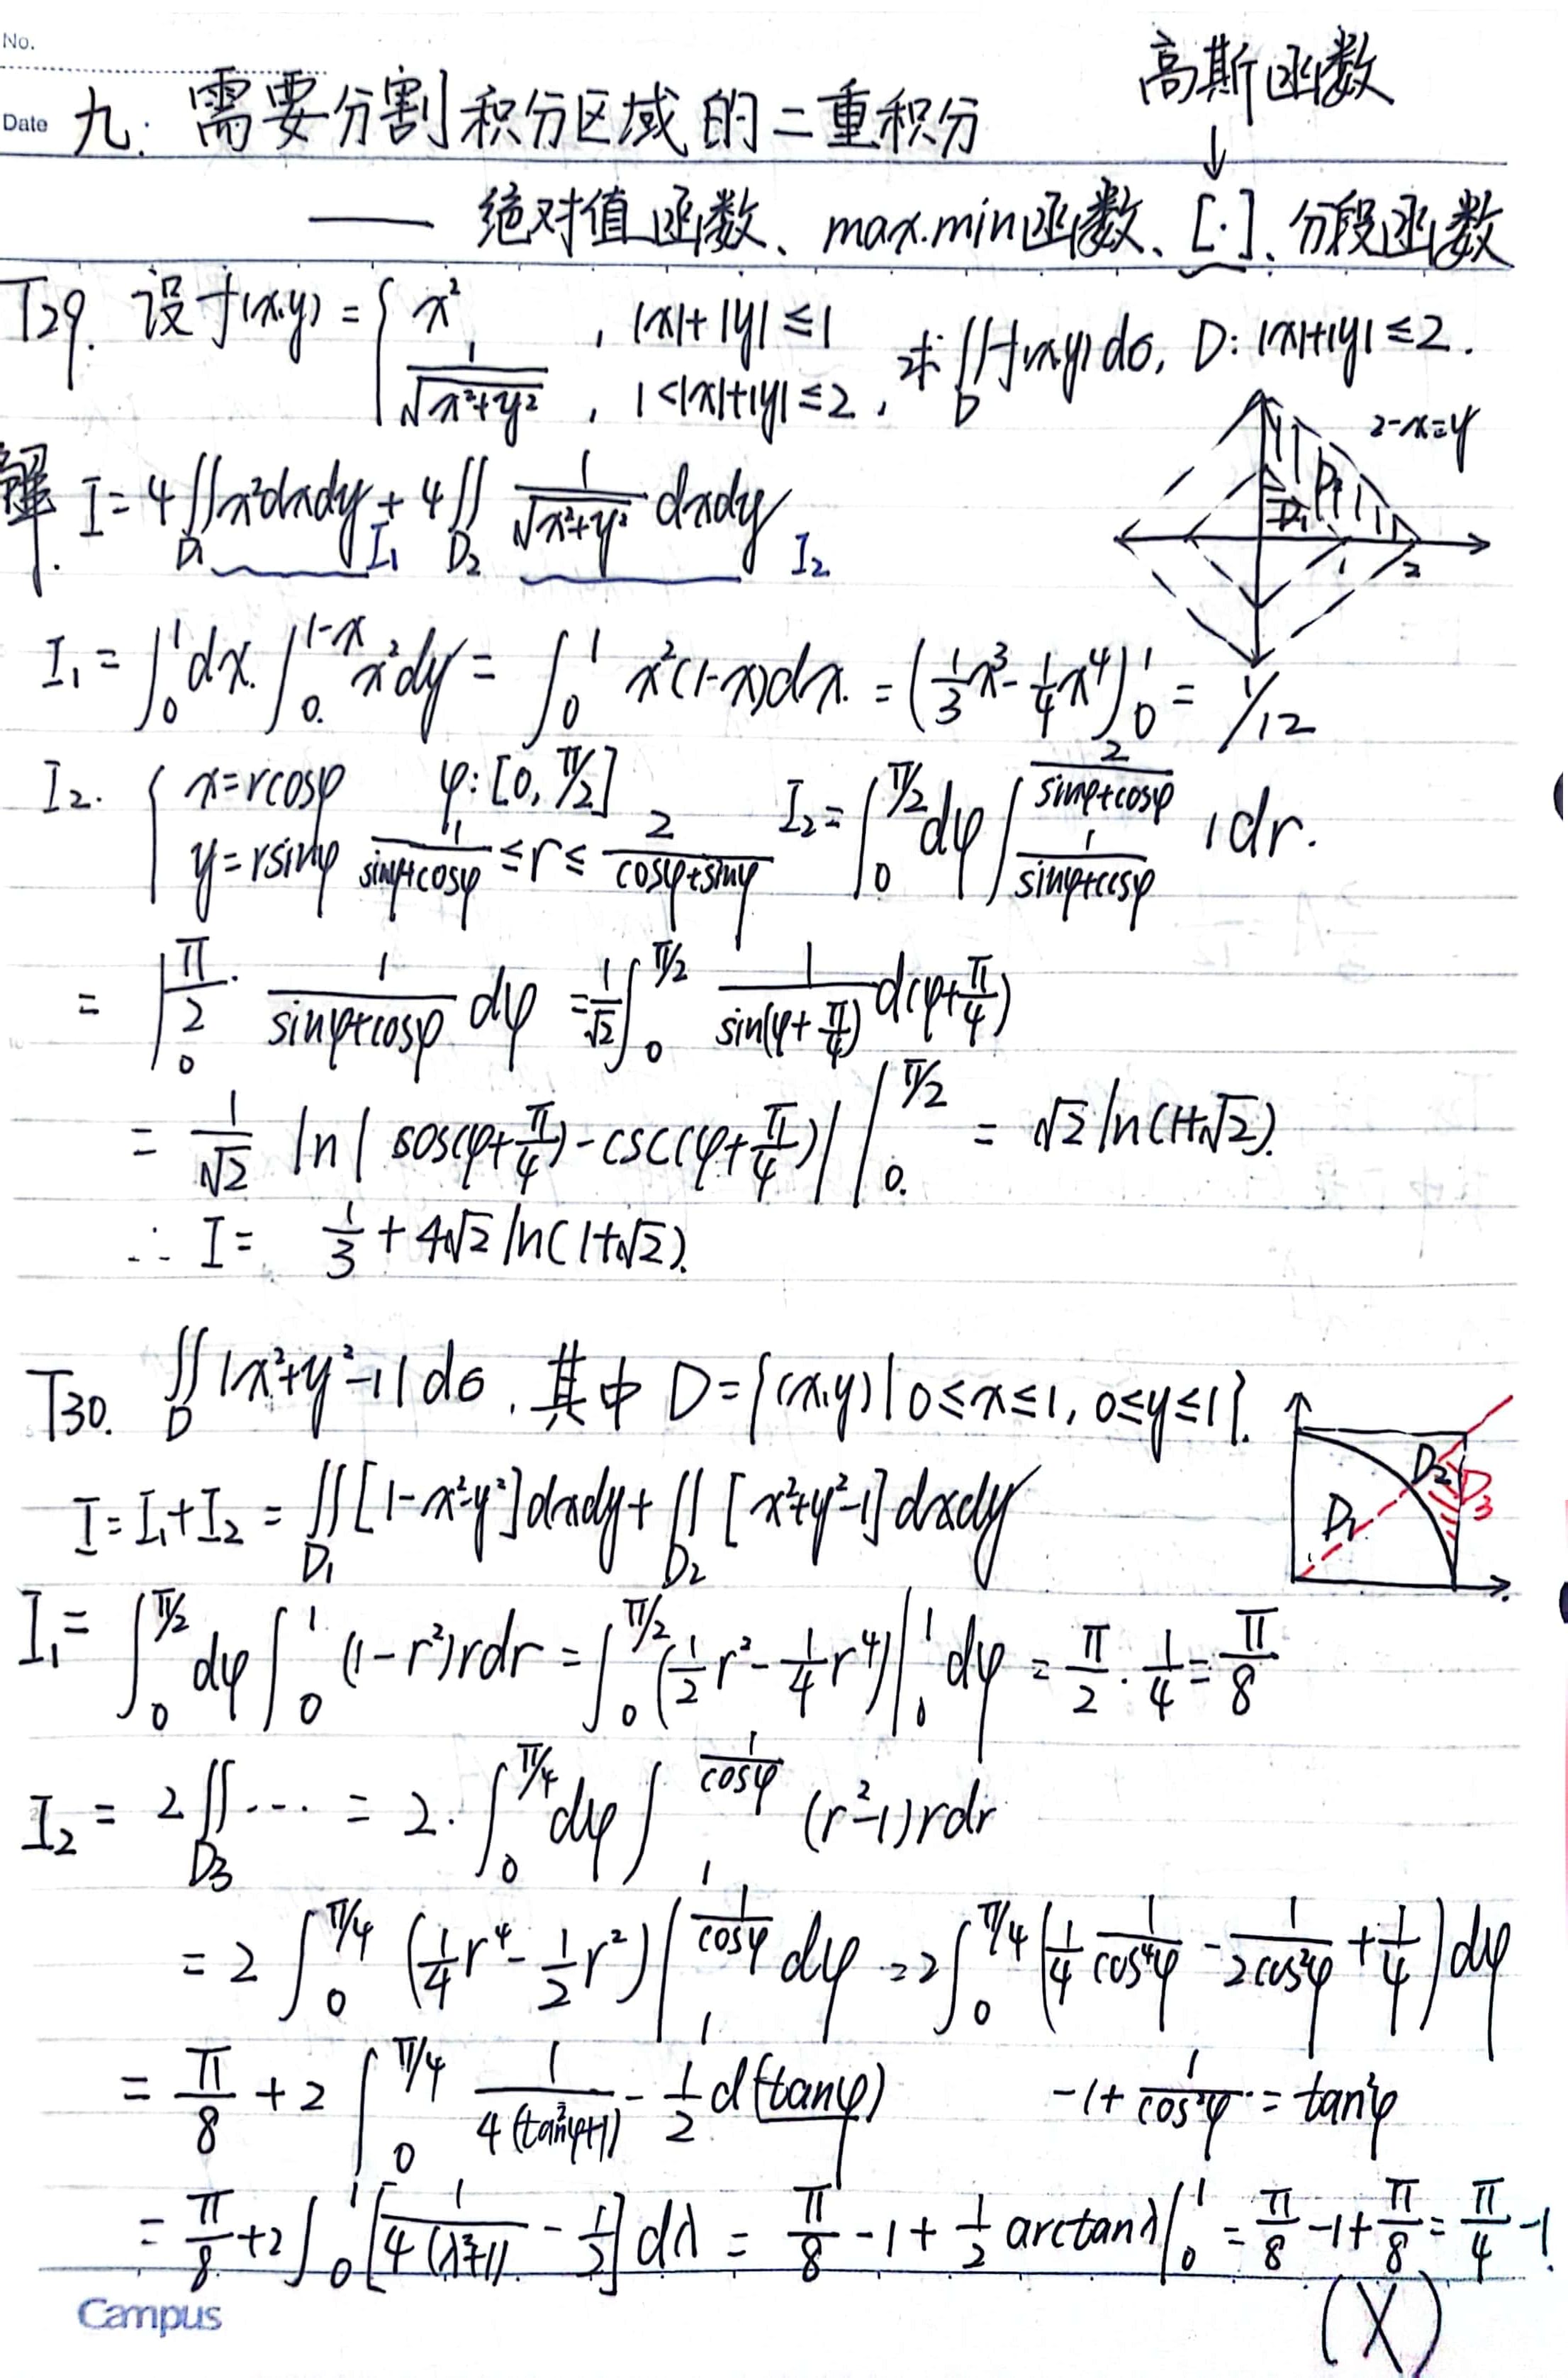 No.
高斯函数
↓
Date 九. 需要分割积分区域的二重积分
—— 绝对值函数、max.min函数、[·]、分段函数
T29. 设 f(x,y) = { x² , |x|+|y| ≤ 1
1/√(x²+y²) , 1<|x|+|y| ≤ 2 , 求 ∬_D f(x,y) dσ, D: |x|+|y| ≤ 2.
2-x=y
D₂
D₁
1 2
解. I = 4∬_{D₁} x²dxdy + 4∬_{D₂} 1/√(x²+y²) dxdy
I₁ I₂
I₁ = ∫₀¹ dx. ∫₀^{1-x} x²dy = ∫₀¹ x²(1-x)dx. = (1/3 x³ - 1/4 x⁴)|₀¹ = 1/12
I₂. { x=rcosφ φ: [0, π/2]
y=rsinφ 1/(sinφ+cosφ) ≤ r ≤ 2/(cosφ+sinφ) I₂ = ∫₀^{π/2} dφ ∫_{1/(sinφ+cosφ)}^{2/(sinφ+cosφ)} 1 dr.
= ∫₀^{π/2} · 1/(sinφ+cosφ) dφ = 1/√2 ∫₀^{π/2} 1/sin(φ+π/4) d(φ+π/4)
= 1/√2 ln| sos(φ+π/4) - csc(φ+π/4) | |₀^{π/2} = √2 ln(1+√2).
∴ I = 1/3 + 4√2 ln(1+√2).
T30. ∬_D |x²+y²-1| dσ, 其中 D={(x,y)| 0≤x≤1, 0≤y≤1}.
D₂ D₃
D₁
I = I₁+I₂ = ∬_{D₁} [1-x²-y²]dxdy + ∬_{D₂} [x²+y²-1]dxdy
I₁ = ∫₀^{π/2} dφ ∫₀¹ (1-r²)rdr = ∫₀^{π/2} (1/2 r² - 1/4 r⁴)|₀¹ dφ = π/2 · 1/4 = π/8
I₂ = 2∬_{D₃} ··· = 2·∫₀^{π/4} dφ ∫₁^{1/cosφ} (r²-1)rdr
= 2 ∫₀^{π/4} (1/4 r⁴ - 1/2 r²)|₁^{1/cosφ} dφ = 2∫₀^{π/4} (1/4 1/cos⁴φ - 1/(2cos²φ) + 1/4) dφ
= π/8 + 2 ∫₀^{π/4} 1/(4(tan²φ+1)) - 1/2 d(tanφ) -1 + 1/cos²φ = tan²φ
= π/8 + 2∫₀¹ [1/(4(λ²+1)) - 1/2] dλ = π/8 - 1 + 1/2 arctanλ|₀¹ = π/8 - 1 + π/8 = π/4 - 1.
(X)
Campus